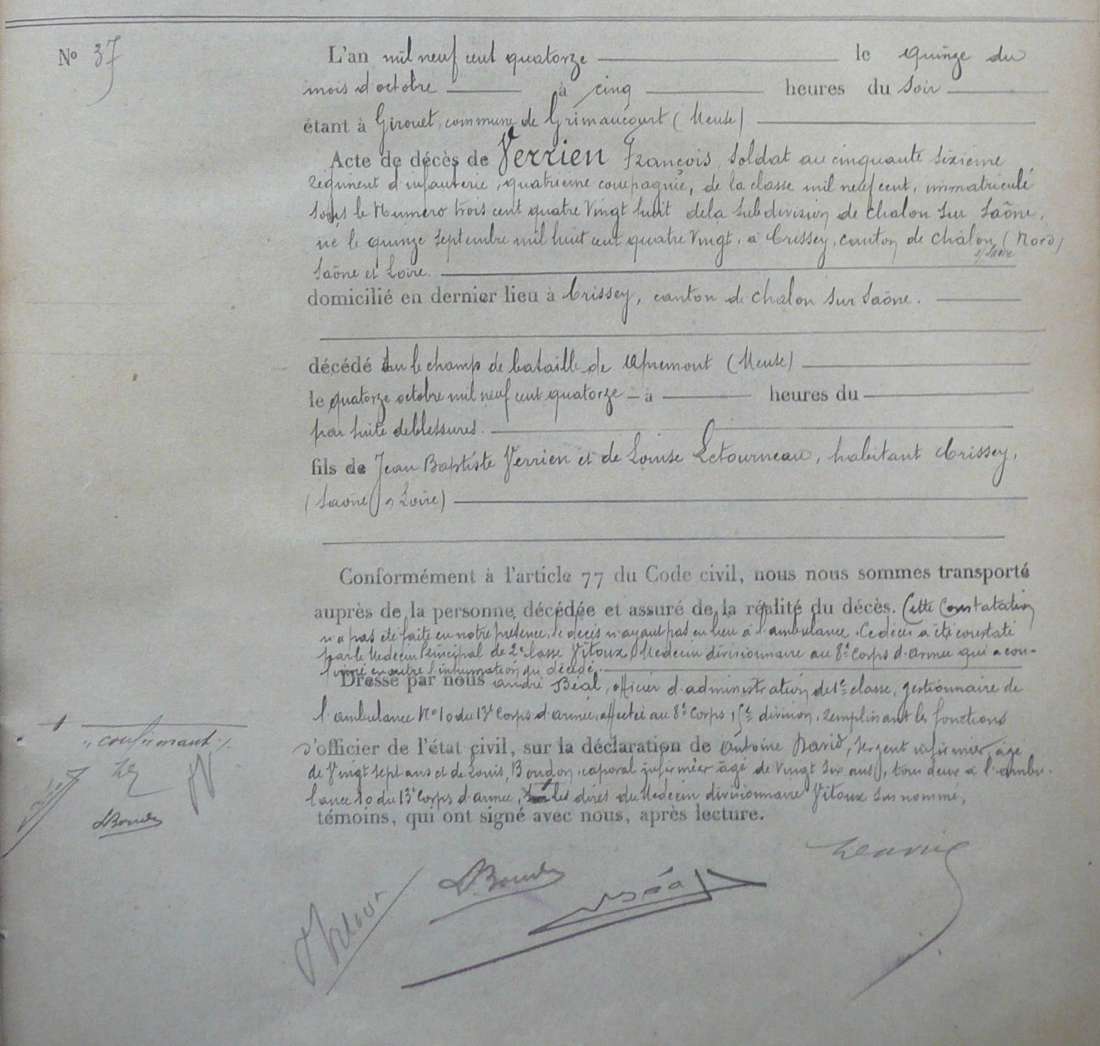 N° 37
L'an mil neuf cent quatorze le quinze du
mois d'octobre à cinq heures du soir
étant à Girouet, commune de Grimaucourt (Meuse)
Acte de décès de Verrien François, soldat au cinquante sixième
régiment d'infanterie, quatrième compagnie, de la classe mil neuf cent, immatriculé
sous le numero trois cent quatre vingt huit de la subdivision de Chalon sur Saône,
né le quinze septembre mil huit cent quatre vingt, à Crissey, canton de Chalon (Nord)
s/ Saône
Saône et Loire.
domicilié en dernier lieu à Crissey, canton de Chalon sur Saône.
décédé sur le champ de bataille de Apremont (Meuse)
le quatorze octobre mil neuf cent quatorze à heures du
par suite de blessures.
fils de Jean Baptiste Verrien et de Louise Letourneau, habitant Crissey,
(Saône & Loire)
Conformément à l'article 77 du Code civil, nous nous sommes transporté
auprès de la personne décédée et assuré de la réalité du décès. Cette constatation
n'a pas été faite en notre présence, le décès n'ayant pas eu lieu à l'ambulance. Ce décès a été constaté
par le Médecin Principal de 2e classe Vitoux, Médecin divisionnaire au 8e Corps d'Armée qui a con-
firmé en outre l'inhumation du décédé.
Dressé par nous André Béal, officier d'administration de 1e classe, gestionnaire de
l'ambulance N° 10 du 13e Corps d'armée, affectée au 8e Corps, division, remplissant les fonctions
d'officier de l'état civil, sur la déclaration de Antoine David, sergent infirmier, âgé
de vingt sept ans et de Louis Boudon, caporal infirmier âgé de vingt six ans, tous deux à l'ambu-
lance 10 du 13e Corps d'armée, les dires du Médecin divisionnaire Vitoux susnommé,
témoins, qui ont signé avec nous, après lecture.
confirmant